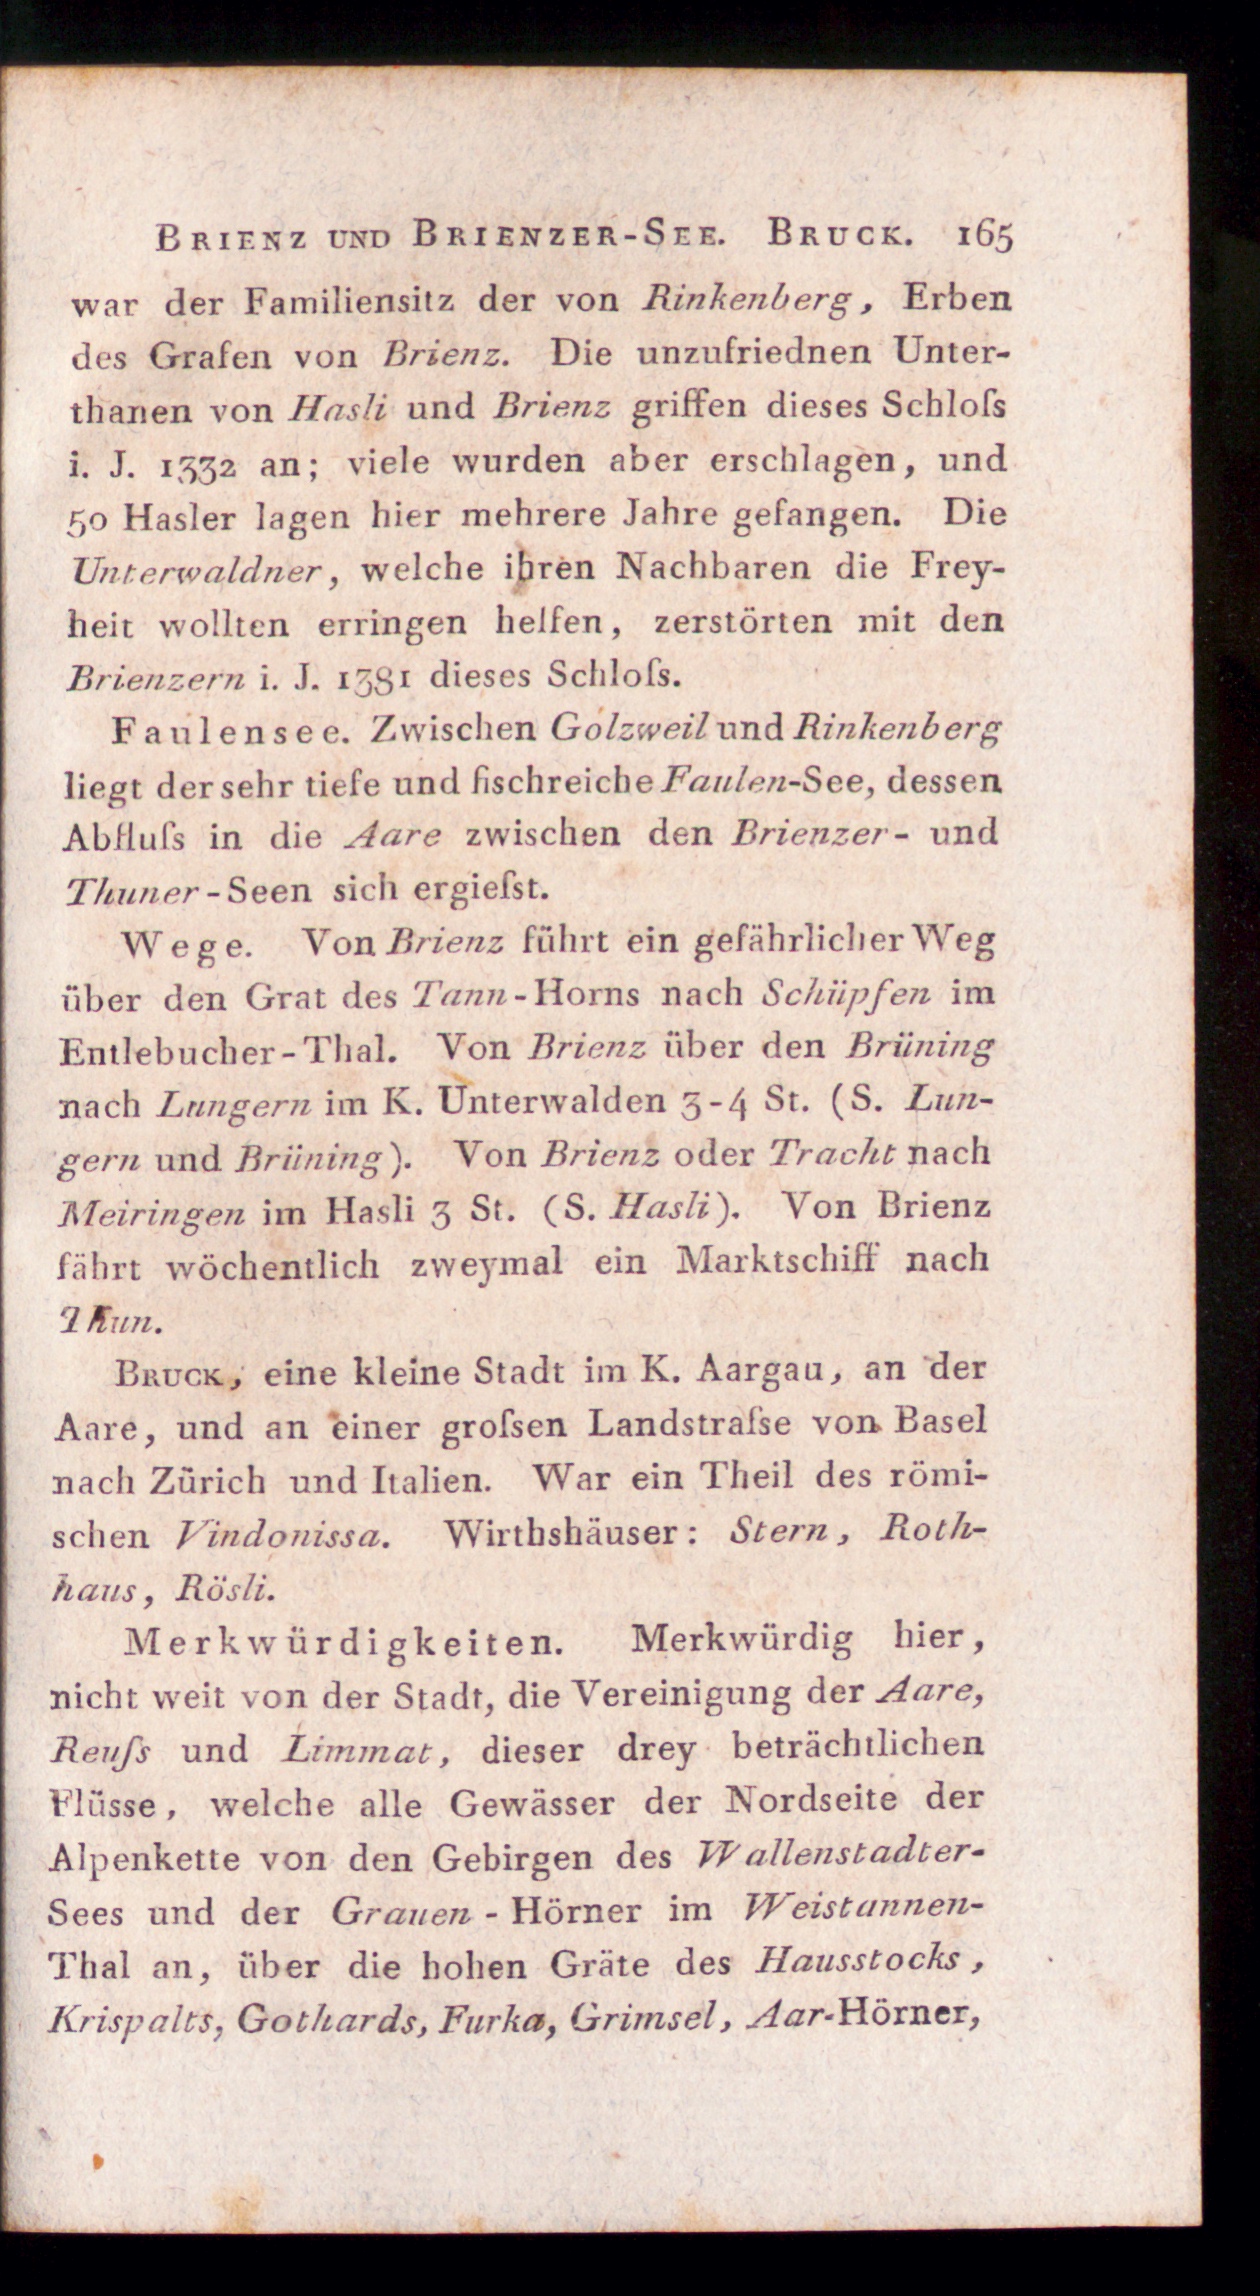 BRIENZ UND BRIENZER-SEE. BRUCK. 165
war der Familiensitz der von Rinkenberg, Erben
des Grafen von Brienz. Die unzufriednen Unter-
thanen von Hasli und Brienz griffen dieses Schloſs
i. J. 1332 an; viele wurden aber erschlagen, und
50 Hasler lagen hier mehrere Jahre gefangen. Die
Unterwaldner, welche ihren Nachbaren die Frey-
heit wollten erringen helfen, zerstörten mit den
Brienzern i. J. 1381 dieses Schloſs.
Faulensee. Zwischen Golzweil und Rinkenberg
liegt der sehr tiefe und fischreiche Faulen-See, dessen
Abfluſs in die Aare zwischen den Brienzer- und
Thuner-Seen sich ergieſst.
Wege. Von Brienz führt ein gefährlicher Weg
über den Grat des Tann-Horns nach Schüpfen im
Entlebucher-Thal. Von Brienz über den Brüning
nach Lungern im K. Unterwalden 3-4 St. (S. Lun-
gern und Brüning). Von Brienz oder Tracht nach
Meiringen im Hasli 3 St. (S. Hasli). Von Brienz
fährt wöchentlich zweymal ein Marktschiff nach
Thun.
BRUCK, eine kleine Stadt im K. Aargau, an der
Aare, und an einer groſsen Landstraſse von Basel
nach Zürich und Italien. War ein Theil des römi-
schen Vindonissa. Wirthshäuser: Stern, Roth-
haus, Rösli.
Merkwürdigkeiten. Merkwürdig hier,
nicht weit von der Stadt, die Vereinigung der Aare,
Reuſs und Limmat, dieser drey beträchtlichen
Flüsse, welche alle Gewässer der Nordseite der
Alpenkette von den Gebirgen des Wallenstadter-
Sees und der Grauen-Hörner im Weistannen-
Thal an, über die hohen Gräte des Hausstocks,
Krispalts, Gothards, Furka, Grimsel, Aar-Hörner,